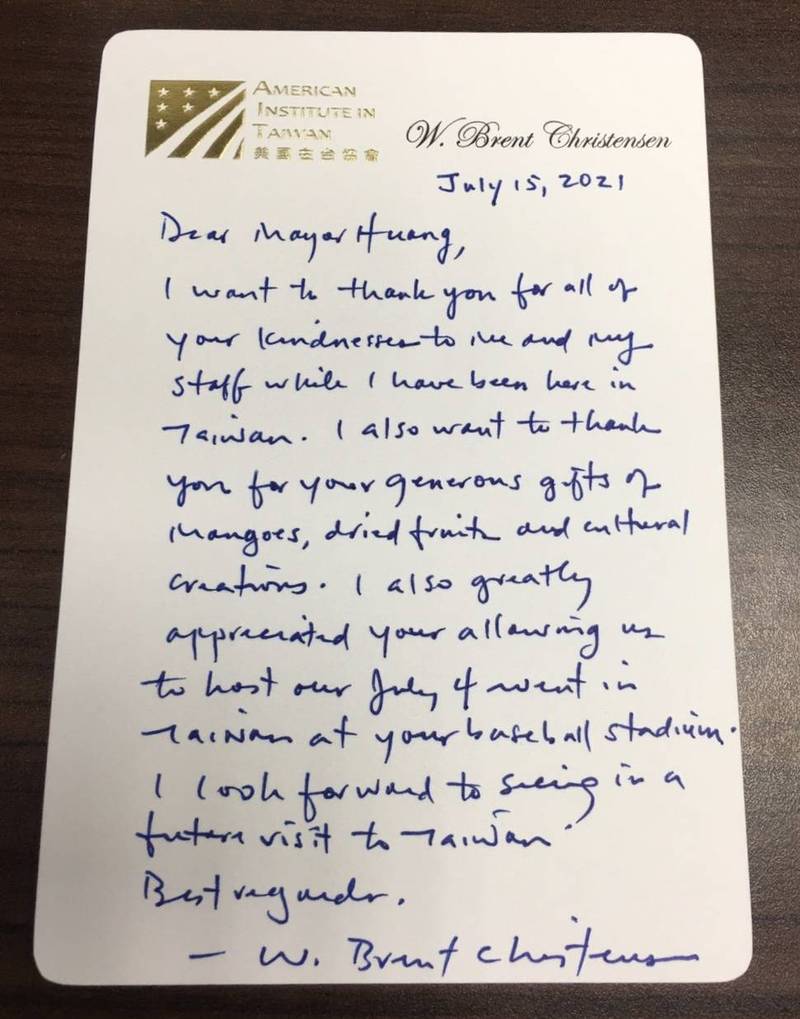 AMERICAN
INSTITUTE IN
TAIWAN
美國在台協會
W. Brent Christensen
July 15, 2021
Dear Mayor Huang,
I want to thank you for all of
your kindnesses to me and my
staff while I have been here in
Taiwan. I also want to thank
you for your generous gifts of
mangoes, dried fruit and cultural
creations. I also greatly
appreciated your allowing us
to host our July 4 event in
Taiwan at your baseball stadium.
I look forward to seeing in a
future visit to Taiwan.
Best regards.
— W. Brent Christensen